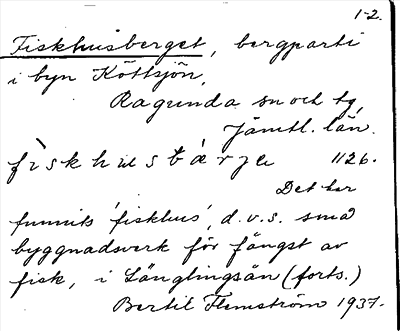 1-2.
Fiskhusberget, bergparti
i byn Köttsjön,
Ragunda sn och tg,
Jämtl. län.
fìskhusbárje 1126.
Det har
funnits 'fiskhus', d.v.s. små
byggnadsverk för fångst av
fisk, i Länglingsån (forts.)
Bertil Flemström 1937.